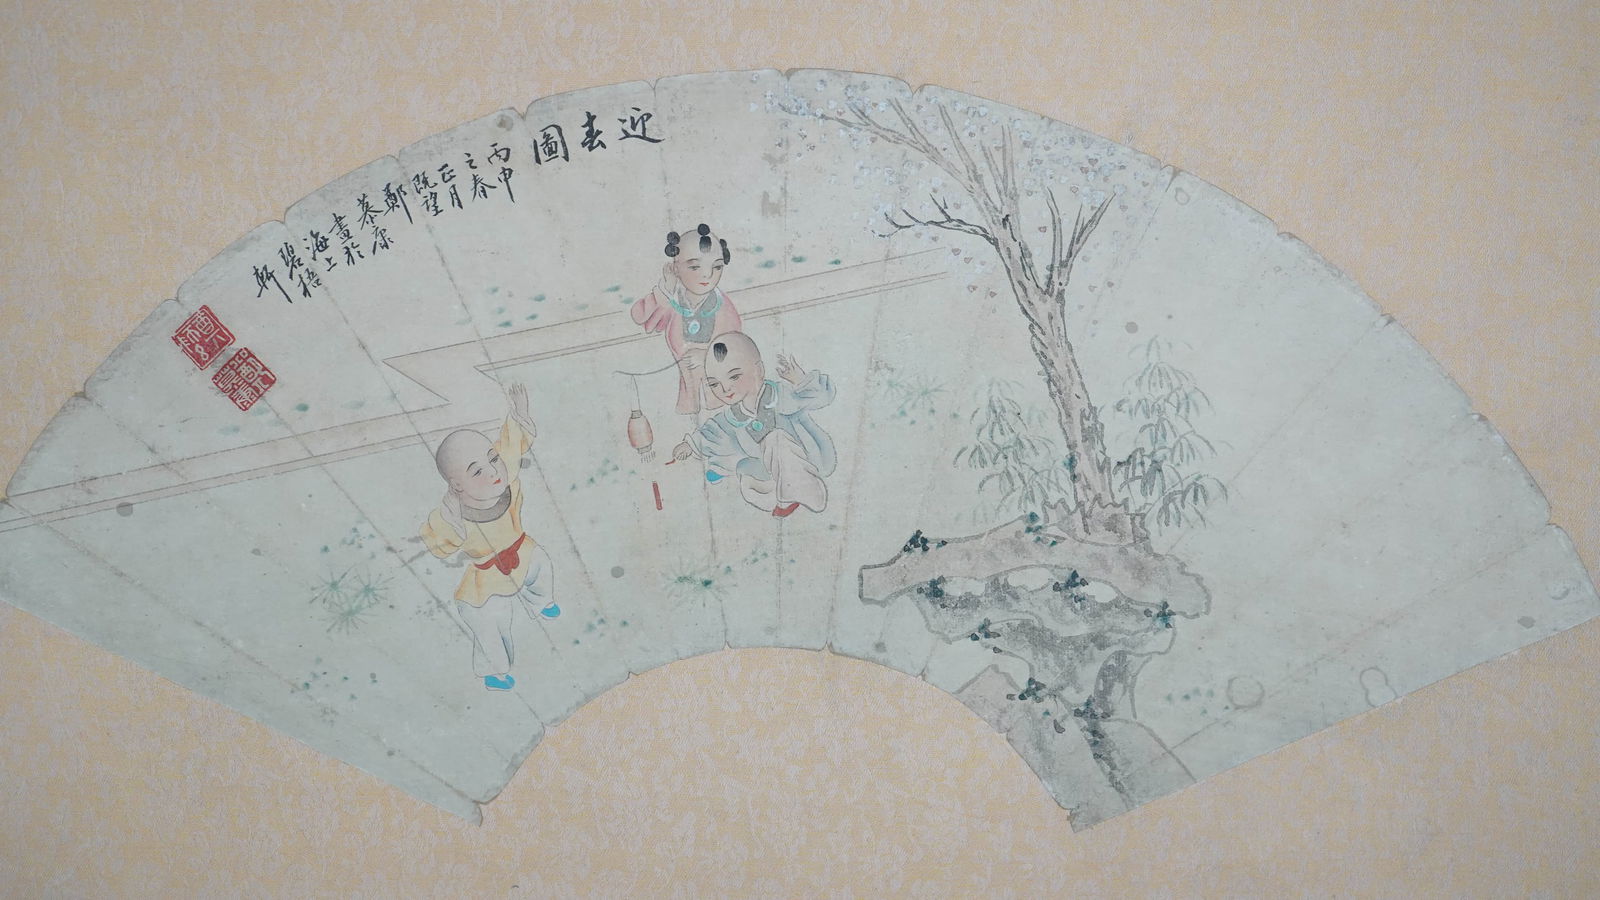 迎春圖
丙申
之春
正月
既望
鄭
慕康
畫於
海上
碧梧
軒